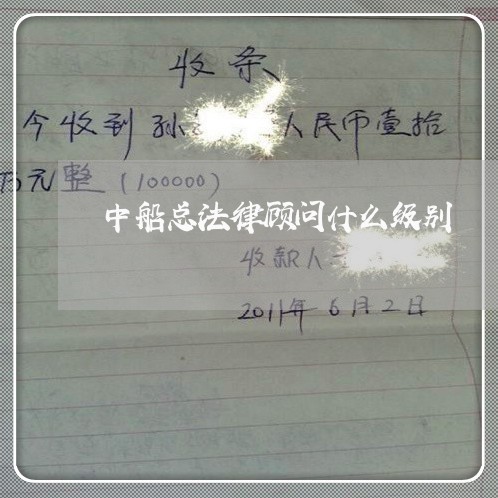 收条
今收到孙 人民币壹拾
万元整(100000)
中船总法律顾问什么级别
收款人
2011年6月2日